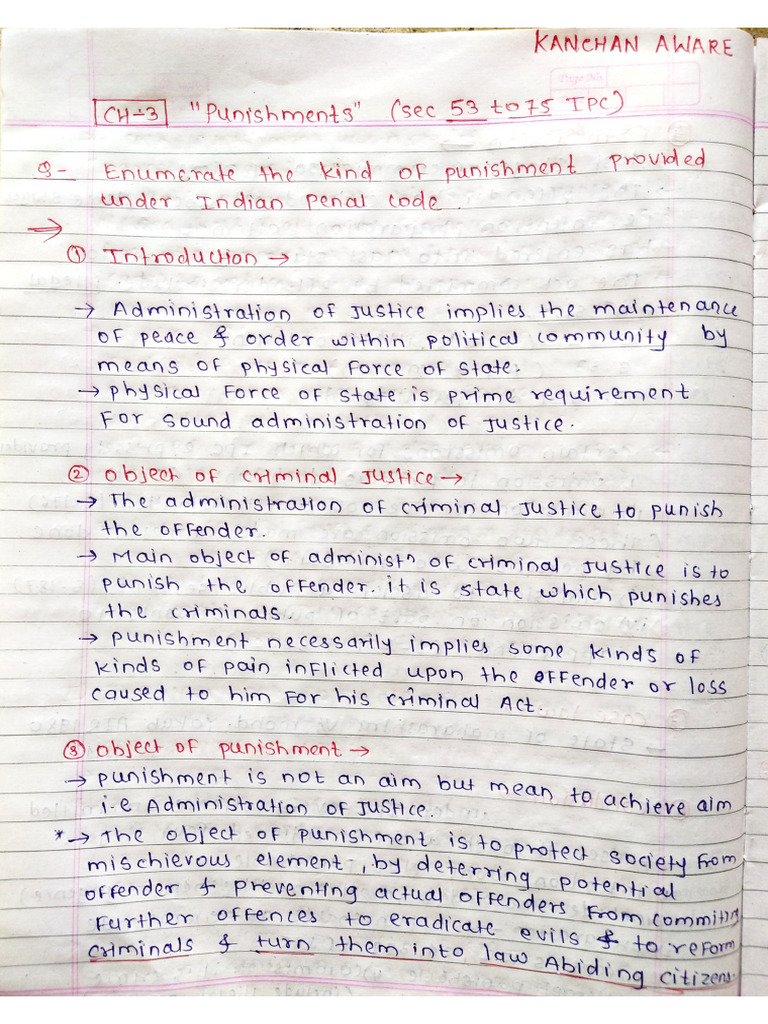 KANCHAN AWARE
CH-3 "Punishments" (sec 53 to 75 IPC)
Q- Enumerate the kind of punishment provided
under Indian Penal Code.
⇒
① Introduction →
→ Administration of Justice implies the maintenance
of peace & order within political community by
means of physical force of state.
→ physical force of state is prime requirement
for sound administration of Justice.
② object of criminal Justice →
→ The administration of criminal Justice to punish
the offender.
→ Main object of administⁿ of criminal Justice is to
punish the offender. it is state which punishes
the criminals.
→ punishment necessarily implies some kinds of
kinds of pain inflicted upon the offender or loss
caused to him for his criminal Act.
③ object of punishment →
→ punishment is not an aim but mean to achieve aim
i.e Administration of Justice.
*→ The object of punishment is to protect society from
mischievous element, by deterring potential
offender & preventing actual offenders from commiting
further offences to eradicate evils & to reform
criminals & turn them into law Abiding citizens.